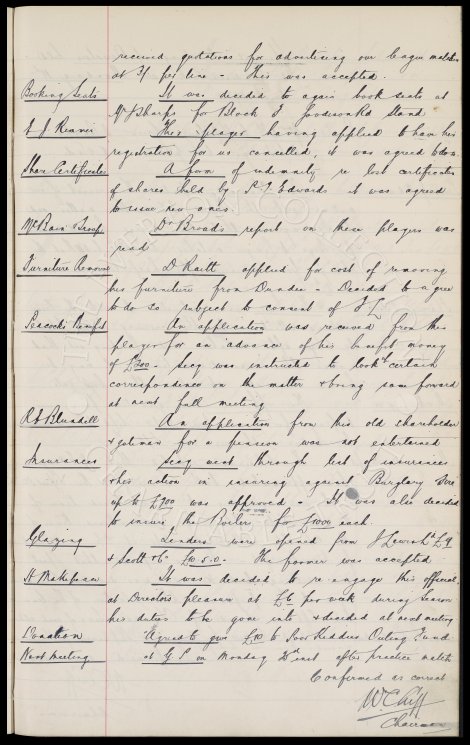 received quotations for advertising our league matches
at 7/- per line - This was accepted.
Booking Seats It was decided to again book seats at
Mr Sharps for Block J Goodison Rd Stand
This player having applied to have his
registration for us cancelled, it was agreed to do so.
Share Certificates A form of indemnity re lost certificates
of shares held by Edwards it was agreed
to issue new ones.
McBain Troup Dr Broads report on these players was
read
Furniture Removal D Raitt applied for cost of removing
his furniture from Dundee - Decided to agree
to do so subject to consent of F L
Peacock's Benefit An application was received from this
player for an advance of his benefit money
of £300 - Secy was instructed to look certain
correspondence on the matter & bring same forward
at next full meeting
R. Blundell An application from this old shareholder
& gateman for a pension was not entertained
Insurances Secy went through list of insurances
& his action in insuring against Burglary Fire
up to £700 was approved - It was also decided
to insure the Boiler for £1000 each.
Glazing Tenders were opened from J Lewis Ld £9
& Scott & Co £10.5.0. The former was accepted
It was decided to re-engage this official
at Directors pleasure at £6 per week during season
his duties to be gone into & decided at next meeting
Donation Agreed to give £10 to Poor Kiddies Outing Fund.
Next Meeting at G.P. on Monday 22nd inst after practice match
Confirmed as correct
W C Cuff
Chairman